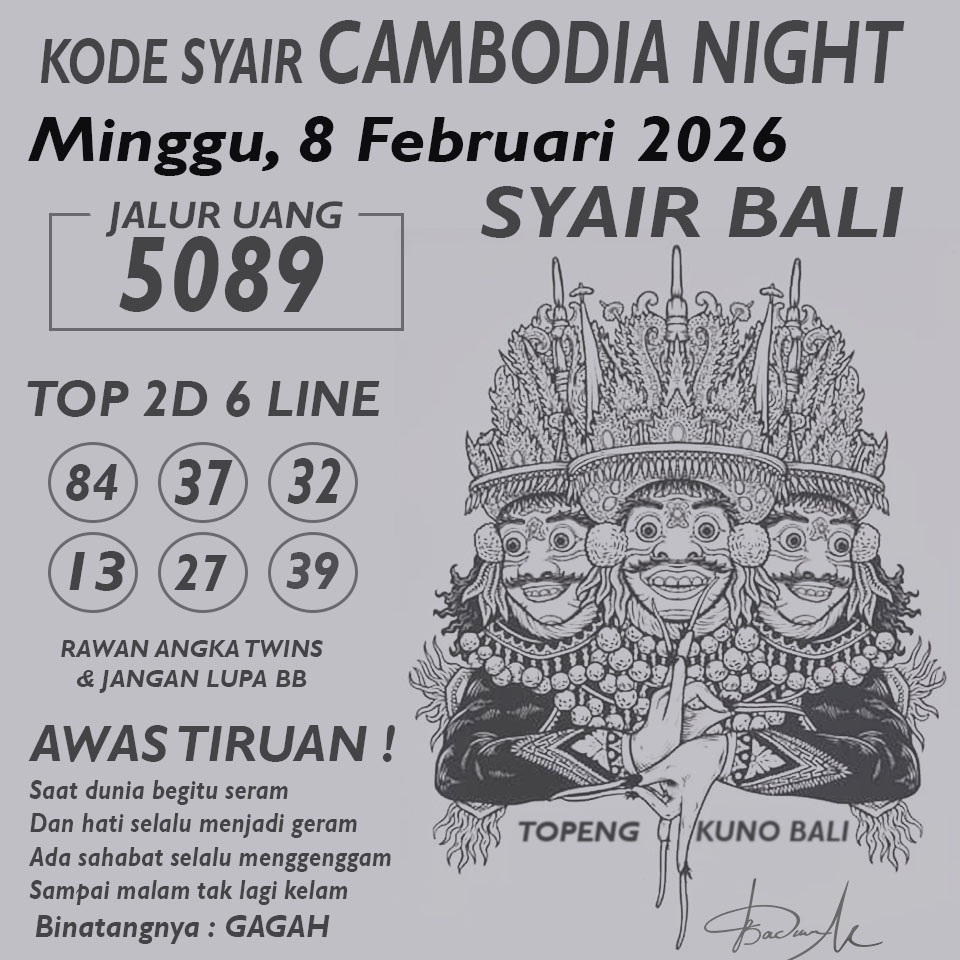 KODE SYAIR CAMBODIA NIGHT
Minggu, 8 Februari 2026
SYAIR BALI
JALUR UANG
5089
TOP 2D 6 LINE
84 37 32
13 27 39
RAWAN ANGKA TWINS
& JANGAN LUPA BB
AWAS TIRUAN !
Saat dunia begitu seram
Dan hati selalu menjadi geram
Ada sahabat selalu menggenggam
Sampai malam tak lagi kelam
Binatangnya : GAGAH
TOPENG KUNO BALI